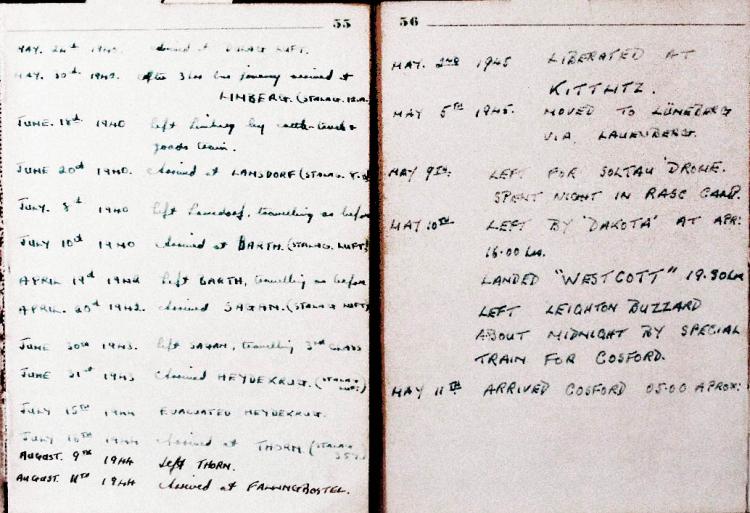 55
MAY. 24th 1940. Arrived at DULAG LUFT.
MAY. 30th 1940. After 3 hrs journey arrived at
LIMBERG. (STALAG. 12.A.)
JUNE. 18th 1940 left Limberg by cattle-trucks
goods train.
JUNE 20th 1940. Arrived at LAMSDORF (STALAG. 8.
JULY. 8th 1940 left Lamsdorf, travelling as before
JULY 10th 1940 Arrived at BARTH. (STALAG. LUFT)
APRIL 19th 1942 left BARTH, travelling as before
APRIL. 20th 1942. Arrived SAGAN. (STALAG LUFT)
JUNE 30th 1943. left SAGAN, travelling 3rd CLASS
JUNE 31st 1943 Arrived HEYDEKRUG. (STALAG LUFT)
JULY 15TH 1944 EVACUATED HEYDEKRUG.
JULY 16TH 1944 Arrived at THORN. (STALAG
357)
AUGUST. 9TH 1944 Left THORN.
AUGUST. 11TH 1944 Arrived at FALLINGBOSTEL.
56
MAY. 2ND 1945 LIBERATED AT
KITTLITZ.
MAY 5TH 1945. MOVED TO LÜNEBERG
VIA LAUENBERG.
MAY 9TH: LEFT FOR SOLTAU 'DROME.
SPENT NIGHT IN RASC CAMP.
MAY 10TH LEFT BY 'DAKOTA' AT APR:
16.00 hrs.
LANDED "WESTCOTT" 19.30hrs
LEFT LEIGHTON BUZZARD
ABOUT MIDNIGHT BY SPECIAL
TRAIN FOR COSFORD.
MAY 11TH ARRIVED COSFORD 05.00 APROX: